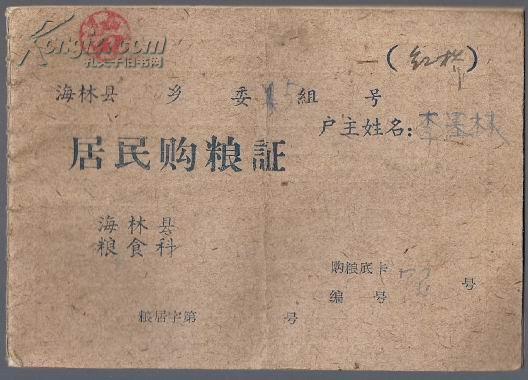 Kongfz.com
孔夫子旧书网
(红岭)
海林县 乡 委 5 组 号
户主姓名：李圣林
居民购粮証
海林县
粮食科
购粮底卡
编号 号
粮居字第 号